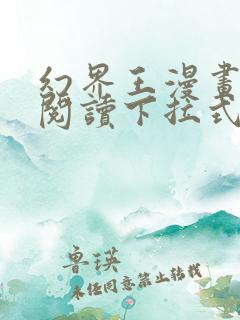 幻界王漫畫
閱讀下拉式
魯瑛
未经同意禁止转载